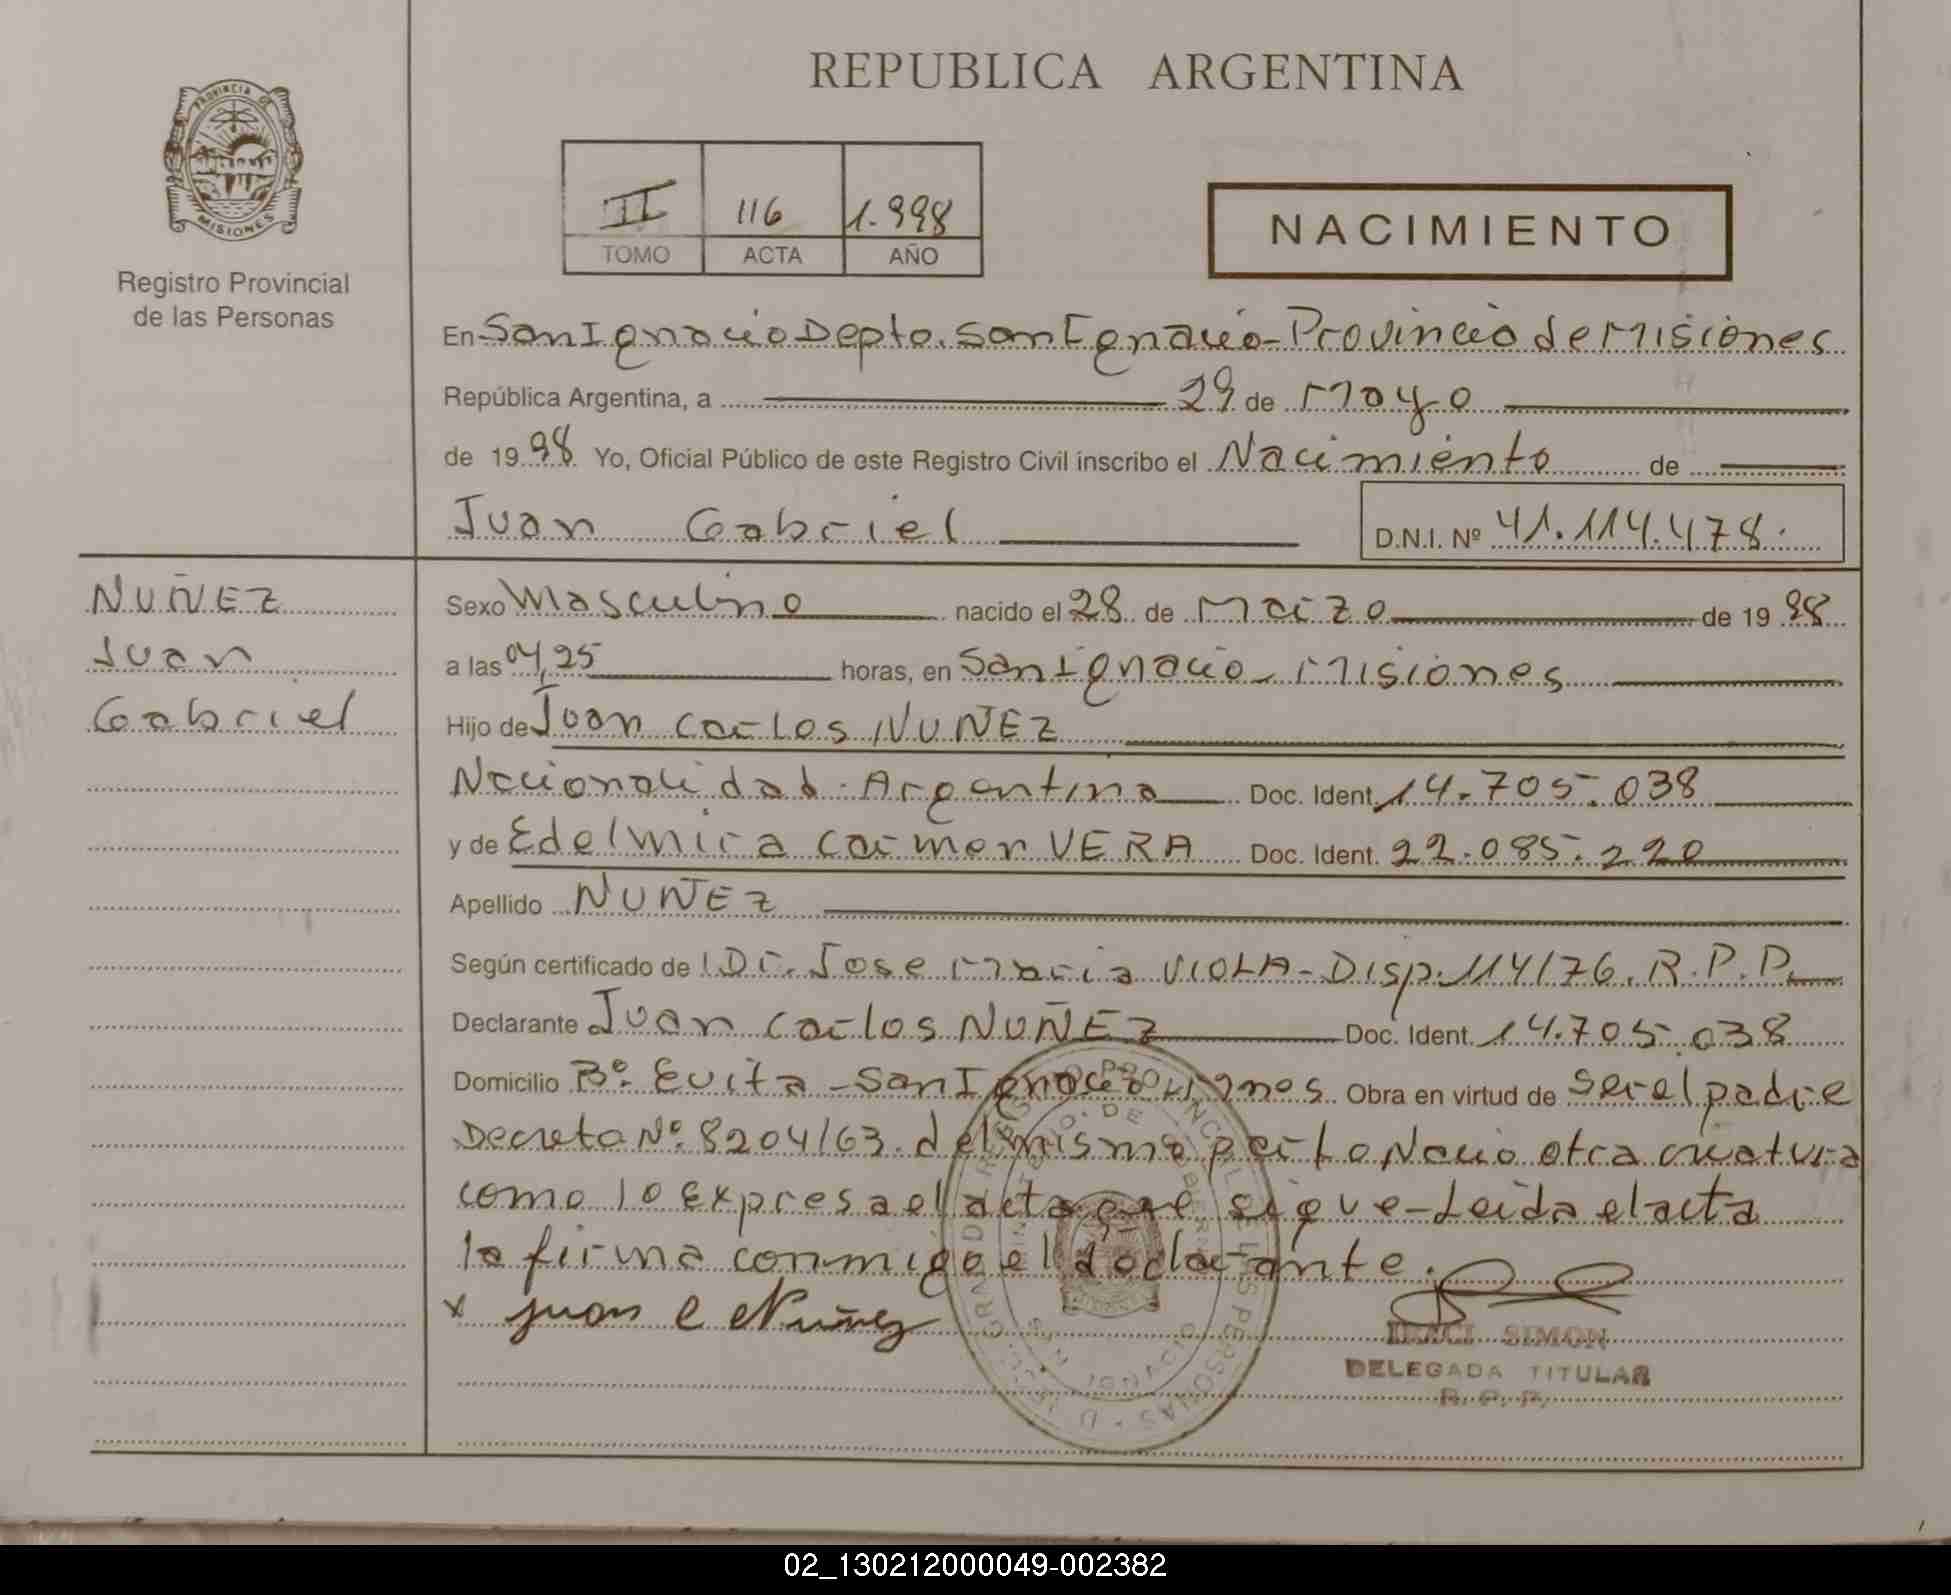 REPUBLICA ARGENTINA
PROVINCIA DE
MISIONES
Registro Provincial
de las Personas
II 116 1.998
TOMO ACTA AÑO
NACIMIENTO
En San Ignacio Depto. San Ignacio - Provincia de Misiones
República Argentina, a 29 de Mayo
de 1998 Yo, Oficial Público de este Registro Civil inscribo el Nacimiento de
Juan Gabriel D.N.I. Nº 41.114.478.
NUÑEZ
Juan
Gabriel
Sexo Masculino nacido el 28 de Marzo de 1998
a las 04,25 horas, en San Ignacio - Misiones
Hijo de Juan Carlos NUÑEZ
Nacionalidad Argentina Doc. Ident. 14.705.038
y de Edelmira Carmen VERA Doc. Ident. 22.085.220
Apellido NUÑEZ
Según certificado de Dr. Jose Maria VIOLA - Disp. 114/76. R.P.P.
Declarante Juan Carlos NUÑEZ Doc. Ident. 14.705.038
Domicilio Bº. Evita - San Ignacio Obra en virtud de ser el padre
Decreto Nº. 8204/63. del mismo parto Nacio otra criatura
como lo expresa el acta que sigue - Leida el acta
la firma conmigo el declarante.
x Juan C Nuñez
SIMON
DELEGADA TITULAR
R. P. P.
SAN IGNACIO
02_130212000049-002382